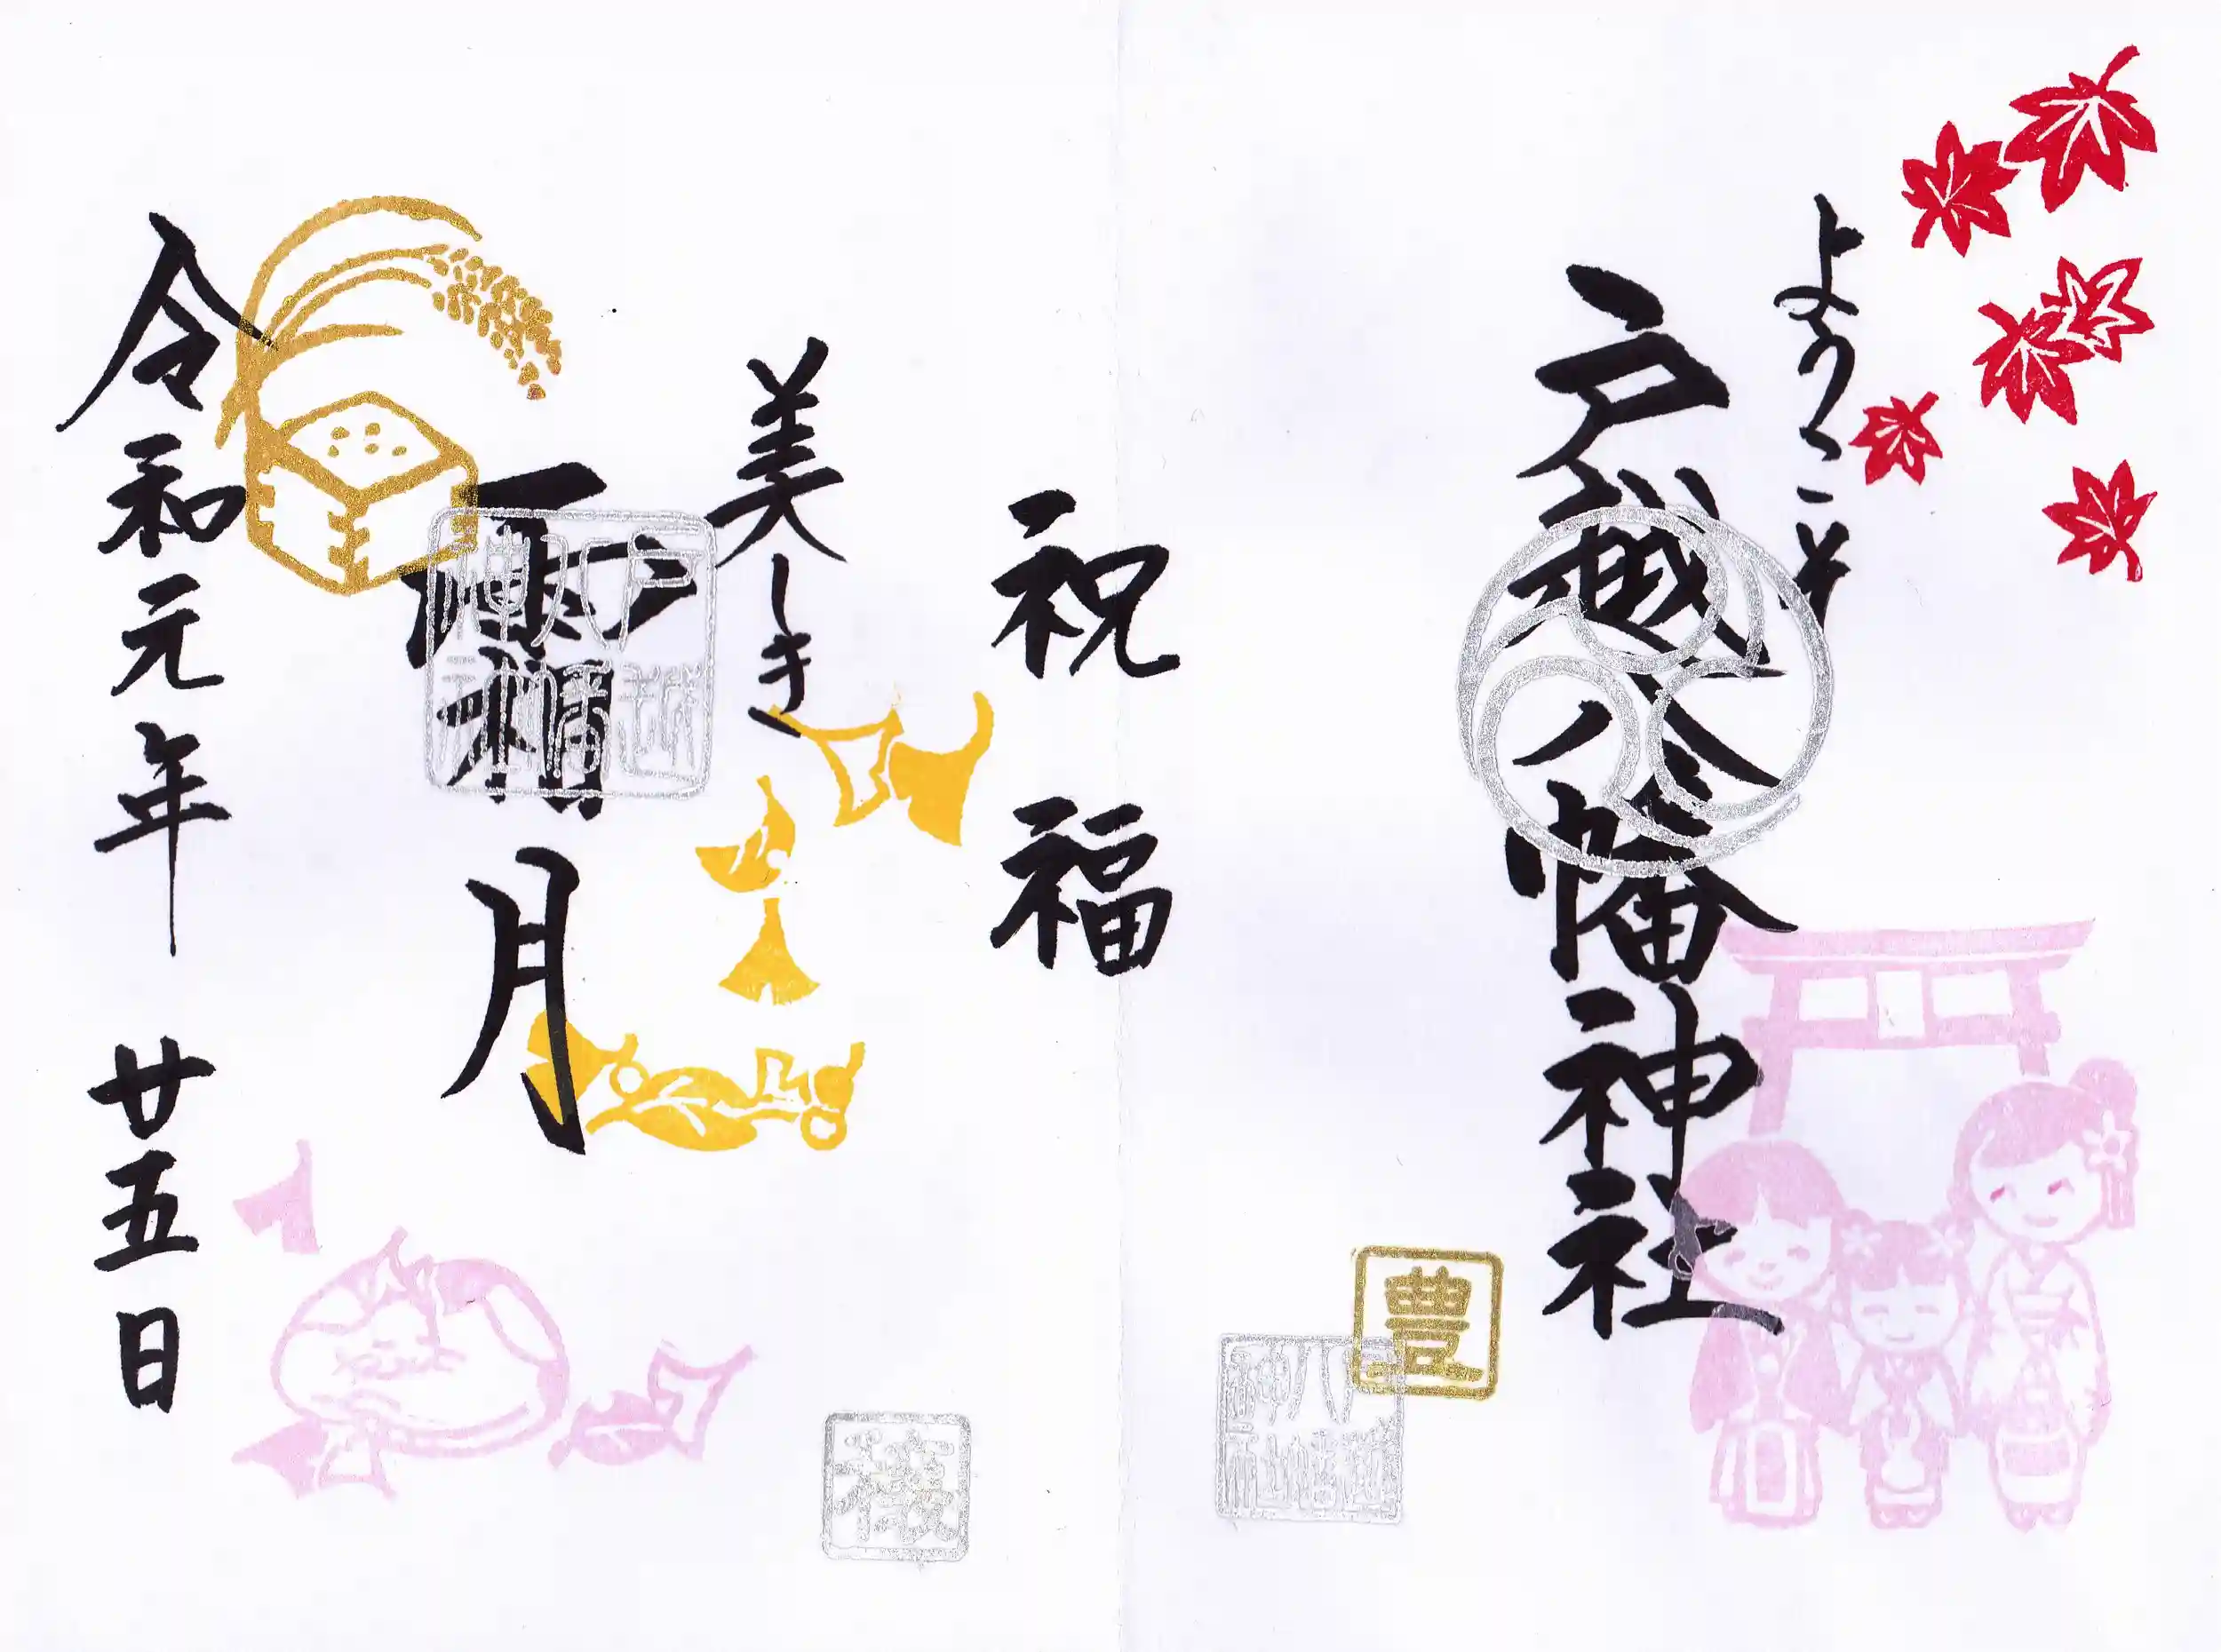 ようこそ
戸越八幡神社
豊
戸越
八幡
神社
祝福
美しき
霜月
戸越
八幡
神社
令和元年 廿五日